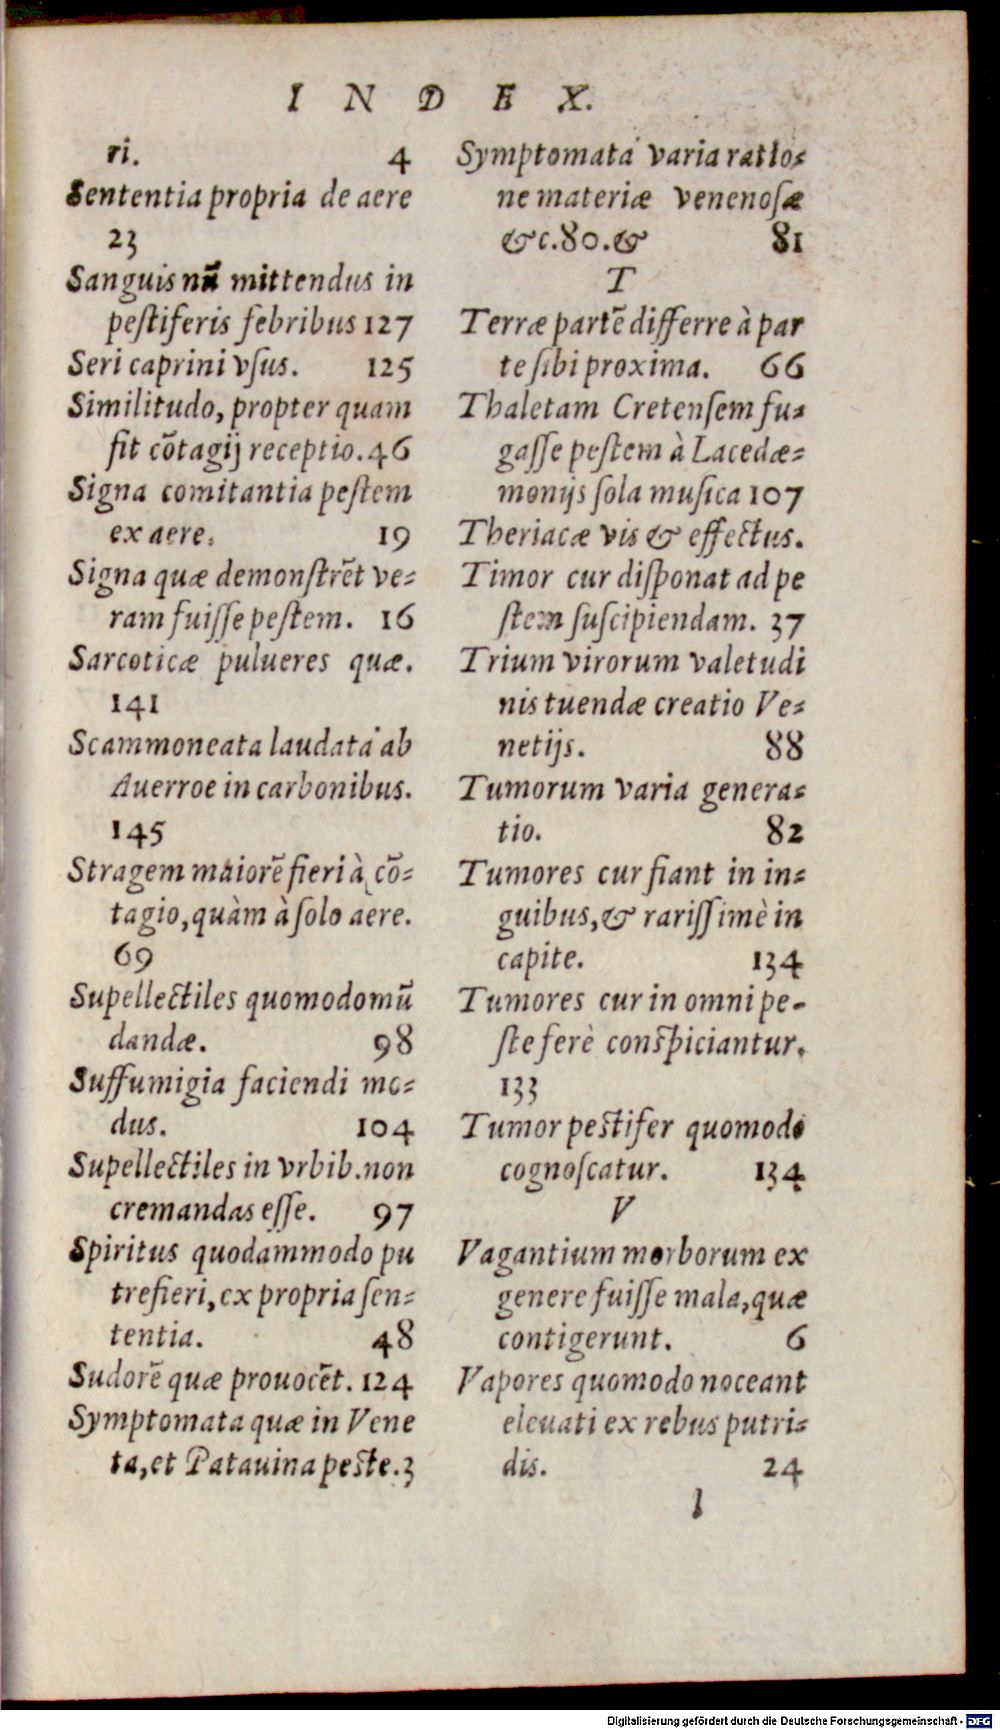 INDEX.
ri. 4
Sententia propria de aere
23
Sanguis nū mittendus in
pestiferis febribus 127
Seri caprini vsus. 125
Similitudo, propter quam
fit cōtagij receptio. 46
Signa comitantia pestem
ex aere. 19
Signa quæ demonstrēt ve=
ram fuisse pestem. 16
Sarcoticæ pulueres quæ.
141
Scammoneata laudata ab
Auerroe in carbonibus.
145
Stragem maiorē fieri à cō=
tagio, quàm à solo aere.
69
Supellectiles quomodo mū
dandæ. 98
Suffumigia faciendi mo=
dus. 104
Supellectiles in vrbib. non
cremandas esse. 97
Spiritus quodammodo pu
trefieri, ex propria sen=
tentia. 48
Sudorē quæ prouocēt. 124
Symptomata quæ in Vene
ta, et Patauina peste. 3
Symptomata varia ratio=
ne materiæ venenosæ
&c. 80. & 81
T
Terræ partē differre à par
te sibi proxima. 66
Thaletam Cretensem fu=
gasse pestem à Lacedæ=
monijs sola musica 107
Theriacæ vis & effectus.
Timor cur disponat ad pe
stem suscipiendam. 37
Trium virorum valetudi
nis tuendæ creatio Ve=
netijs. 88
Tumorum varia genera=
tio. 82
Tumores cur fiant in in=
guibus, & rarissimè in
capite. 134
Tumores cur in omni pe-
ste ferè conspiciantur.
133
Tumor pestifer quomodo
cognoscatur. 134
V
Vagantium morborum ex
genere fuisse mala, quæ
contigerunt. 6
Vapores quomodo noceant
eleuati ex rebus putri=
dis. 24
l
Digitalisierung gefördert durch die Deutsche Forschungsgemeinschaft - DFG